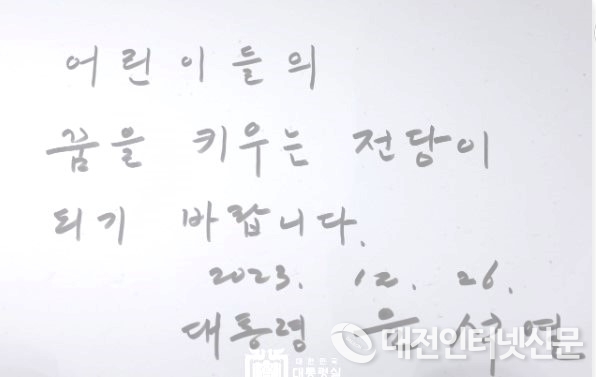 어린이들의
꿈을 키우는 전당이
되기 바랍니다.
2023. 12. 26.
대통령 윤석열
대전인터넷신문
대한민국
대통령실